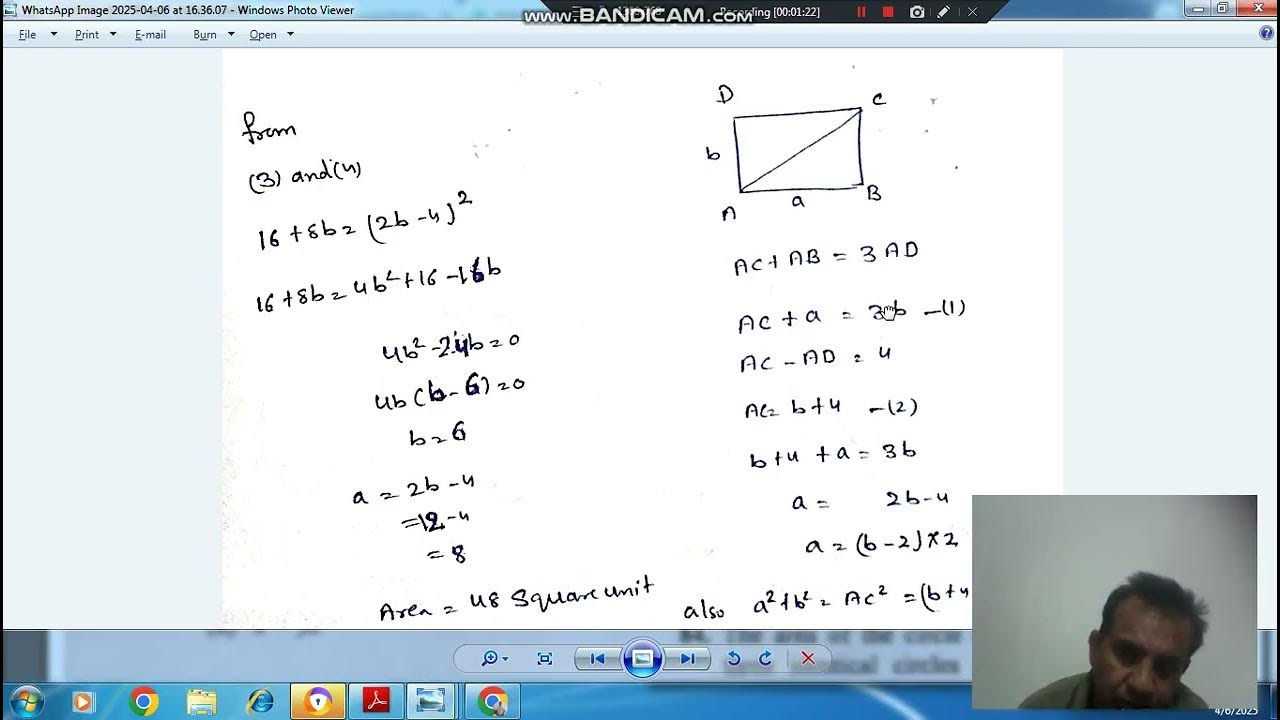 WhatsApp Image 2025-04-06 at 16.36.07 - Windows Photo Viewer
www.BANDICAM.com
Recording [00:01:22]
File Print E-mail Burn Open
from
(3) and (4)
16 + 8b = (2b - 4)²
16 + 8b = 4b² + 16 - 16b
4b² - 24b = 0
4b (b - 6) = 0
b = 6
a = 2b - 4
= 12 - 4
= 8
Area = 48 Square unit
D
C
b
A
a
B
AC + AB = 3 AD
AC + a = 3b - (1)
AC - AD = 4
AC = b + 4 - (2)
b + 4 + a = 3b
a = 2b - 4
a = (b - 2) × 2
also a² + b² = AC² = (b + 4
The area of the circle
circles
4/6/2025